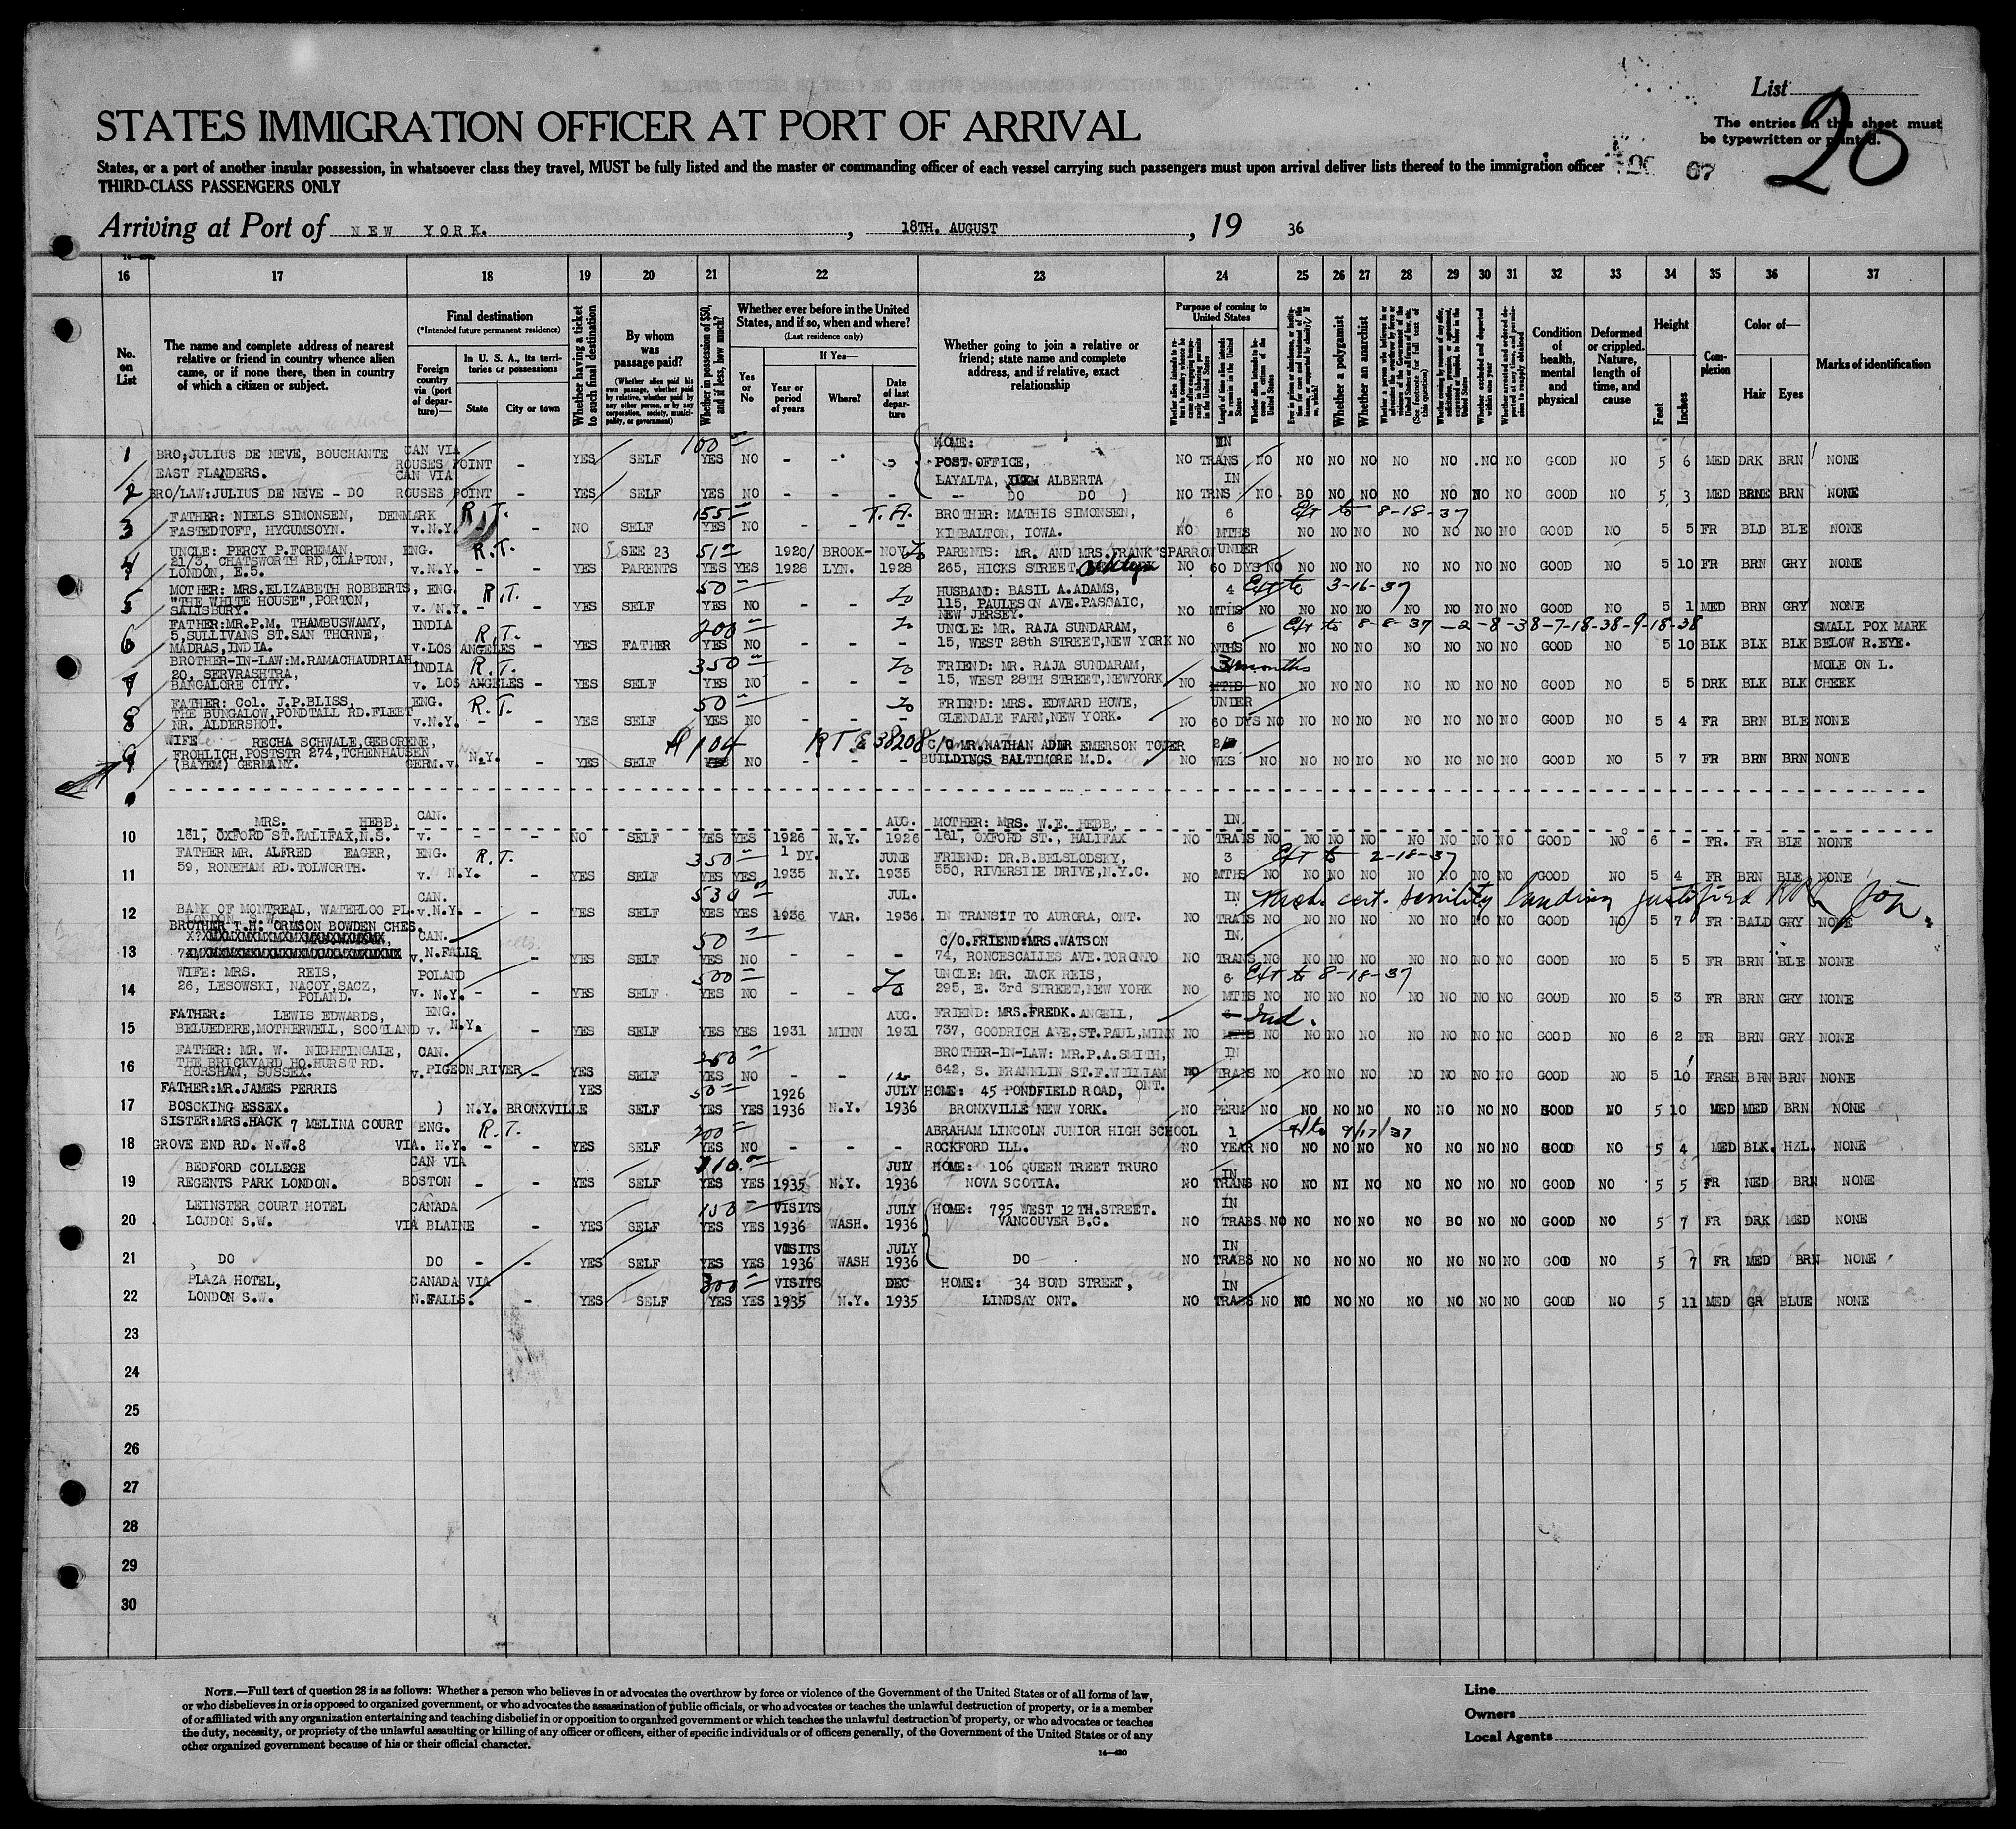 List
20
The entries on this sheet must
be typewritten or printed.
STATES IMMIGRATION OFFICER AT PORT OF ARRIVAL
States, or a port of another insular possession, in whatsoever class they travel, MUST be fully listed and the master or commanding officer of each vessel carrying such passengers must upon arrival deliver lists thereof to the immigration officer
67
THIRD-CLASS PASSENGERS ONLY
Arriving at Port of NEW YORK. , 18TH. AUGUST , 19 36
16 17 18 19 20 21 22 23 24 25 26 27 28 29 30 31 32 33 34 35 36 37
No. on List
The name and complete address of nearest relative or friend in country whence alien came, or if none there, then in country of which a citizen or subject.
Final destination
(*Intended future permanent residence)
Foreign country via (port of departure)—
In U. S. A., its territories or possessions
State
City or town
Whether having a ticket to such final destination
By whom was passage paid?
(Whether alien paid his own passage, whether paid by relative, whether paid by any other person, or by any corporation, society, municipality, or government)
Whether in possession of $50, and if less, how much?
Whether ever before in the United States, and if so, when and where?
(Last residence only)
Yes or No
If Yes—
Year or period of years
Where?
Date of last departure
Whether going to join a relative or friend; state name and complete address, and if relative, exact relationship
Purpose of coming to United States
Length of time alien intends to remain in the United States
Whether a polygamist
Whether an anarchist
Condition of health, mental and physical
Deformed or crippled. Nature, length of time, and cause
Height
Feet
Inches
Complexion
Color of—
Hair
Eyes
Marks of identification
1 BRO;JULIUS DE NEVE, BOUCHANTE CAN VIA 100 HOME: IN
EAST FLANDERS. ROUSES POINT - YES SELF YES NO - - - POST OFFICE, NO TRANS NO NO NO NO NO NO NO NO GOOD NO 5 6 MED DRK BRN NONE
CAN VIA LAYALTA, ALBERTA IN
2 BRO/LAW:JULIUS DE NEVE - DO ROUSES POINT - YES SELF YES NO - - - DO DO ) NO TRNS NO BO NO NO NO NO NO NO GOOD NO 5 3 MED BRNE BRN NONE
FATHER: NIELS SIMONSEN, DENMARK R.T. 155 T.A. BROTHER: MATHIS SIMONSEN, 6 Ext to 8-18-37
3 FASTEDTOFT, HYGUMSOYN. v.N.Y. - - NO SELF YES NO - - KIMBALTON, IOWA. NO MTHS NO NO NO NO NO NO NO GOOD NO 5 5 FR BLD BLE NONE
UNCLE: PERCY P.FOREMAN, ENG. R.T. SEE 23 51 1920/ BROOK- NOV PARENTS: MR. AND MRS.FRANK SPARROW UNDER
4 21/3, CHATSWORTH RD,CLAPTON, LONDON, E.5. v.N.Y. - - YES PARENTS YES YES 1928 LYN. 1928 265, HICKS STREET, Brooklyn NO 60 DYS NO NO NO NO NO NO NO NO GOOD NO 5 10 FR BRN GRY NONE
MOTHER: MRS.ELIZABETH ROBBERTS, ENG. R.T. 50 HUSBAND: BASIL A.ADAMS, 4 Ext to 3-16-37
5 "THE WHITE HOUSE",PORTON, SALISBURY. v. N.Y. - - YES SELF YES NO - - 115, PAULESON AVE.PASCAIC, NEW JERSEY. NO MTHS NO NO NO NO NO NO NO NO GOOD NO 5 1 MED BRN GRY NONE
FATHER:MR.P.M. THAMBUSWAMY, INDIA R.T. 200 UNCLE: MR. RAJA SUNDARAM, 6 Ext to 8-8-37-2-8-38-7-18-38-9-18-38 SMALL POX MARK
6 5,SULLIVANS ST.SAN THORNE, MADRAS,INDIA. v.LOS ANGELES - YES FATHER YES NO - - - 15, WEST 28th STREET,NEW YORK NO MTHS NO NO NO NO NO NO NO NO GOOD NO 5 10 BLK BLK BLK BELOW R.EYE.
BROTHER-IN-LAW:M.RAMACHAUDRIAH, INDIA R.T. 350 FRIEND: MR. RAJA SUNDARAM, 3 months MOLE ON L.
7 20, SERVRASHTRA, BANGALORE CITY. v. LOS ANGELES - YES SELF YES NO - - - 15, WEST 28TH STREET,NEWYORK NO MTHS NO NO NO NO NO NO NO NO GOOD NO 5 5 DRK BLK BLK CHEEK
FATHER: Col. J.P.BLISS, ENG. R.T. 50 FRIEND: MRS. EDWARD HOWE, UNDER
8 THE BUNGALOW,PONDTALL RD.FLEET NR. ALDERSHOT. v.N.Y. - - YES SELF YES NO - - - GLENDALE FARM,NEW YORK. NO 60 DYS NO NO NO NO NO NO NO NO GOOD NO 5 4 FR BRN BLE NONE
WIFE RECHA SCHWALE,GEBORENE, 104 RTE 38208 C/O MR.NATHAN ADLR EMERSON TOWER
9 FROHLICH,POSTSTR 274,TCHENHAUSEN (BAYEM) GERMANY. GERM.v. N.Y. - YES SELF YES NO - - - BUILDINGS BALTIMORE M.D. NO WKS NO NO NO NO NO NO NO NO GOOD NO 5 7 FR BRN BRN NONE
MRS. HEBB, CAN. AUG. MOTHER: MRS. W.E. HEBB, IN
10 161, OXFORD ST.HALIFAX,N.S. v. - - NO SELF YES YES 1926 N.Y. 1926 161, OXFORD ST., HALIFAX NO TRANS NO NO NO NO NO NO NO NO GOOD NO 6 - FR. FR BLE NONE
FATHER MR. ALFRED EAGER, ENG. R.T. 350 1 DY. JUNE FRIEND: DR.B.BELSLODSKY, 3 Ext to 2-18-37
11 59, RONEHAM RD.TOLWORTH. v. N.Y. - YES SELF YES YES 1935 N.Y. 1935 550, RIVERSIDE DRIVE,N.Y.C. NO MTHS NO NO NO NO NO NO NO NO GOOD NO 5 4 FR BRN BLE NONE
CAN. 530 JUL. IN cert. senility landing justified
12 BANK OF MONTREAL, WATERLOO PL. LONDON, S.W. v.N.Y. - - YES SELF YES YES 1936 VAR. 1936 IN TRANSIT TO AURORA, ONT. NO TRANS NO NO NO NO NO NO NO NO GOOD NO 5 7 FR BALD GRY NONE
BROTHER T.H. ORMSON BOWDEN CHES. CAN. 50 C/O.FRIEND:MRS.WATSON IN
13 v. N.FALLS - YES SELF YES NO - - - 74, RONCESCALLES AVE.TORONTO NO TRANS NO NO NO NO NO NO NO NO GOOD NO 5 5 FR BRN BLE NONE
WIFE: MRS. REIS, POLAND 500 UNCLE: MR. JACK REIS, 6 Ext to 8-18-37
14 26, LESOWSKI, NACOY,SACZ, POLAND. v. N.Y. - - YES SELF YES NO - - 295, E. 3rd STREET,NEW YORK NO MTHS NO NO NO NO NO NO NO NO GOOD NO 5 3 FR BRN GRY NONE
FATHER: LEWIS EDWARDS, ENG. AUG. FRIEND: MRS.FREDK. ANGELL, Ind.
15 BELUEDERE,MOTHERWELL, SCOTLAND v. N.Y. - YES SELF YES YES 1931 MINN 1931 737, GOODRICH AVE.ST.PAUL,MINN NO MTHS NO NO NO NO NO NO NO NO GOOD NO 6 2 FR BRN GRY NONE
FATHER: MR. W. NIGHTINGALE, CAN. BROTHER-IN-LAW: MR.P.A.SMITH, IN
16 THE BRICKYARD HO.HURST RD. HORSHAM, SUSSEX. v. PIGEON RIVER - YES SELF YES NO - - 642, S. FRANKLIN ST.F.WILLIAM ONT. NO TRANS NO NO NO NO NO NO NO NO GOOD NO 5 10 FRSH BRN BRN NONE
FATHER:MR.JAMES PERRIS YES 50 1926 JULY HOME: 45 PONDFIELD ROAD,
17 BOSCKING ESSEX. ) N.Y. BRONXVILLE SELF YES YES 1936 N.Y. 1936 BRONXVILLE NEW YORK. NO PERM NO NO NO NO NO NO NO NO GOOD NO 5 10 MED MED BRN NONE
SISTER:MRS.HACK 7 MELINA COURT ENG. R.T. 200 ABRAHAM LINCOLN JUNIOR HIGH SCHOOL 1 9/17/37
18 GROVE END RD. N.W.8 VIA. N.Y. - - YES SELF YES NO - - - ROCKFORD ILL. NO YEAR NO NO NO NO NO NO NO NO GOOD NO 5 4 MED BLK. HZL. NONE
BEDFORD COLLEGE CAN VIA JULY HOME: 106 QUEEN TREET TRURO IN
19 REGENTS PARK LONDON. BOSTON - - YES SELF YES YES 1935 N.Y. 1936 NOVA SCOTIA. NO TRANS NO NO NI NO NO NO NO NO GOOD NO 5 5 FR NED BRN NONE
LEINSTER COURT HOTEL CANADA 150 VISITS JULY HOME: 795 WEST 12TH.STREET. IN
20 LOJDON S.W. VIA BLAINE - YES SELF YES YES 1936 WASH. 1936 VANCOUVER B.C. NO TRABS NO NO NO NO NO BO NO NO GOOD NO 5 7 FR DRK MED NONE
VISITS JULY IN
21 DO DO - - YES SELF YES YES 1936 WASH 1936 DO NO TRABS NO NO NO NO NO NO NO NO GOOD NO 5 7 FR MED BRN NONE
PLAZA HOTEL, CANADA VIA 300 VISITS DEC HOME: 34 BOND STREET, IN
22 LONDON S.W. N.FALLS. - YES SELF YES YES 1935 N.Y. 1935 LINDSAY ONT. NO TRABS NO NO NO NO NO NO NO NO GOOD NO 5 11 MED GR BLUE NONE
23
24
25
26
27
28
29
30
NOTE.—Full text of question 28 is as follows: Whether a person who believes in or advocates the overthrow by force or violence of the Government of the United States or of all forms of law,
or who disbelieves in or is opposed to organized government, or who advocates the assassination of public officials, or who advocates or teaches the unlawful destruction of property, or is a member
of or affiliated with any organization entertaining and teaching disbelief in or opposition to organized government or which teaches the unlawful destruction of property, or who advocates or teaches
the duty, necessity, or propriety of the unlawful assaulting or killing of any officer or officers, either of specific individuals or of officers generally, of the Government of the United States or of any
other organized government because of his or their official character.
14—430
Line
Owners
Local Agents